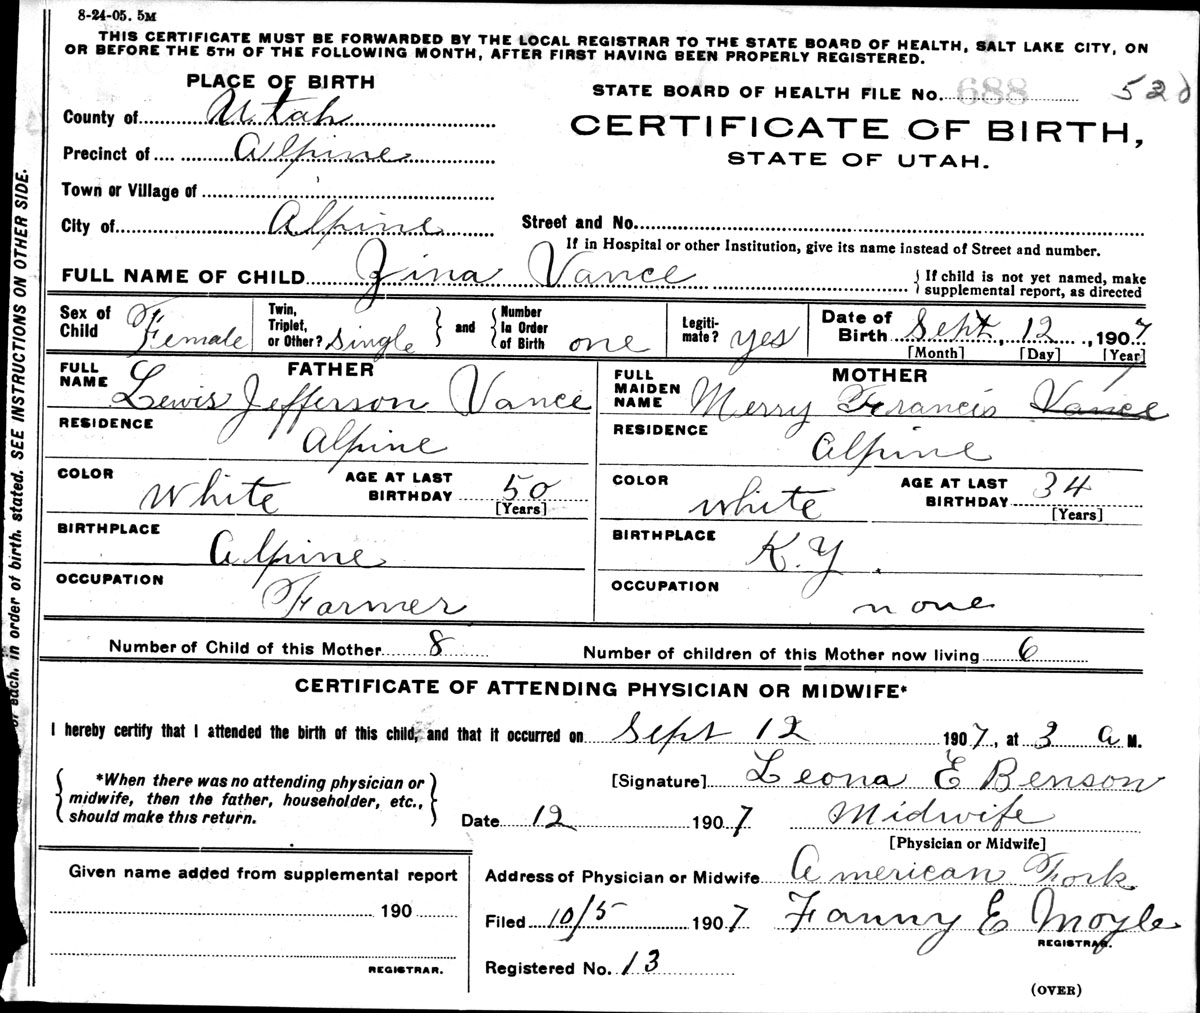 8-24-05. 5M
THIS CERTIFICATE MUST BE FORWARDED BY THE LOCAL REGISTRAR TO THE STATE BOARD OF HEALTH, SALT LAKE CITY, ON
OR BEFORE THE 5TH OF THE FOLLOWING MONTH, AFTER FIRST HAVING BEEN PROPERLY REGISTERED.
PLACE OF BIRTH
STATE BOARD OF HEALTH FILE No. 688 520
County of Utah
CERTIFICATE OF BIRTH,
STATE OF UTAH.
Precinct of Alpine
Town or Village of
City of Alpine
Street and No.
If in Hospital or other Institution, give its name instead of Street and number.
FULL NAME OF CHILD Zina Vance
{ If child is not yet named, make
supplemental report, as directed
Sex of Child Female
Twin, Triplet, or Other? single
and
Number In Order of Birth one
Legiti- mate? yes
Date of Birth Sept, 12, 1907
[Month] [Day] [Year]
FATHER
FULL NAME Lewis Jefferson Vance
RESIDENCE Alpine
COLOR White
AGE AT LAST BIRTHDAY 50
[Years]
BIRTHPLACE Alpine
OCCUPATION Farmer
MOTHER
FULL MAIDEN NAME Merry Francis Vance
RESIDENCE Alpine
COLOR White
AGE AT LAST BIRTHDAY 34
[Years]
BIRTHPLACE K.Y.
OCCUPATION none
Number of Child of this Mother 8
Number of children of this Mother now living 6
CERTIFICATE OF ATTENDING PHYSICIAN OR MIDWIFE*
I hereby certify that I attended the birth of this child, and that it occurred on Sept 12 1907, at 3 a M.
*When there was no attending physician or
midwife, then the father, householder, etc.,
should make this return.
[Signature] Leona E Benson
Date 12 1907 Midwife
[Physician or Midwife]
Given name added from supplemental report
190
REGISTRAR.
Address of Physician or Midwife American Fork
Filed 10/5 1907 Fanny E Moyle
REGISTRAR.
Registered No. 13
(OVER)
each, in order of birth, stated. SEE INSTRUCTIONS ON OTHER SIDE.